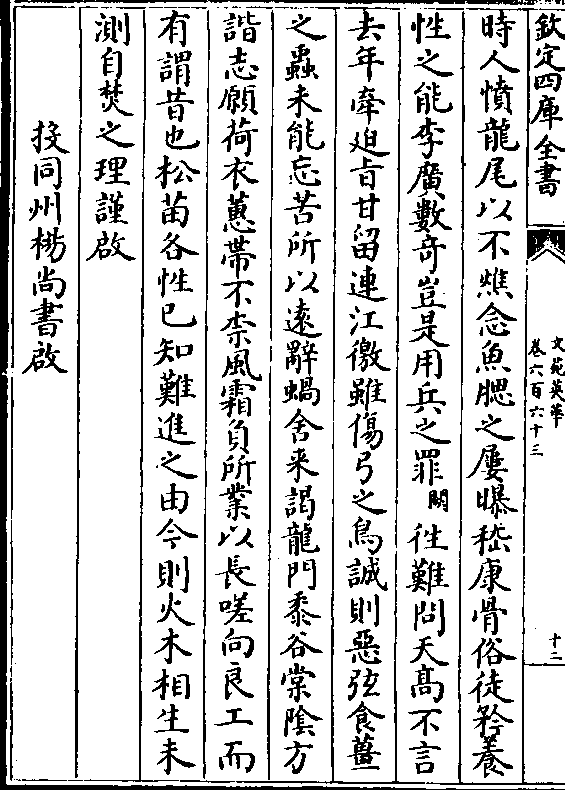 欽定四庫全書
文苑英華
卷六百六十三
十二
時人憤龍尾以不燋念魚腮之屢曝嵇康骨俗徒矜養
性之能李廣數奇豈是用兵之罪闕徃難問天髙不言
去年牽廹㫖甘留連江徼雖傷弓之鳥誠則惡弦食薑
之蟲未能忘苦所以遠辭蝸舍来謁龍門黍谷棠隂方
諧志願荷衣蕙帶不柰風霜負所業以長嗟向良工而
有謂昔也松苗各性已知難進之由今則火木相生未
測自焚之理謹啟
投同州楊尚書啟